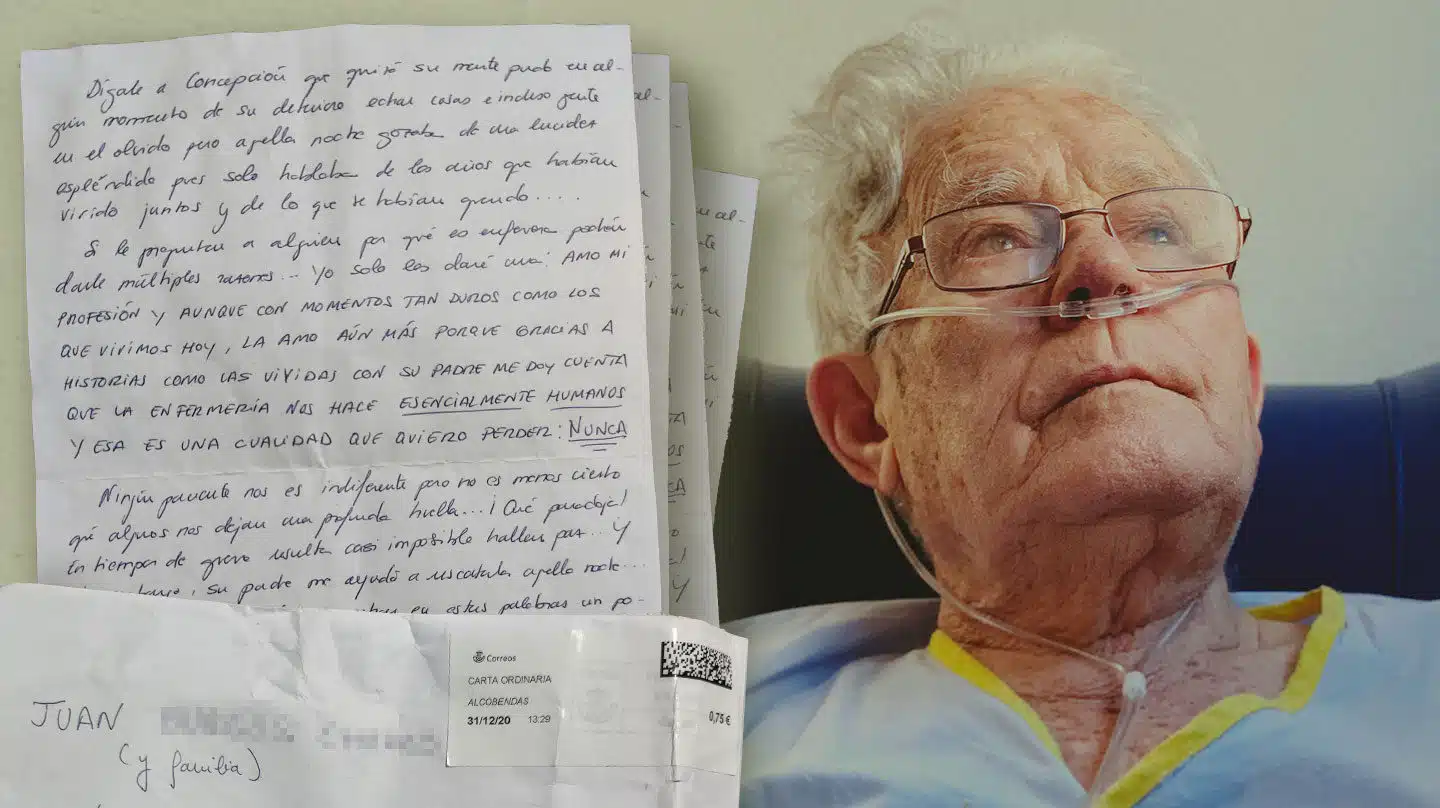 Dígale a Concepción que quizá su mente pudo en al-
gún momento de su deterioro echar cosas e incluso gente
en el olvido pero aquella noche gozaba de una lucidez
espléndida pues solo hablaba de los años que habían
vivido juntos y de lo que se habían querido.....
Si le preguntan a alguien por qué es enfermera podrán
darle múltiples razones... Yo solo les daré una: AMO MI
PROFESIÓN Y AUNQUE CON MOMENTOS TAN DUROS COMO LOS
QUE VIVIMOS HOY, LA AMO AÚN MÁS PORQUE GRACIAS A
HISTORIAS COMO LAS VIVIDAS CON SU PADRE ME DOY CUENTA
QUE LA ENFERMERÍA NOS HACE ESENCIALMENTE HUMANOS
Y ESA ES UNA CUALIDAD QUE QUIERO PERDER: NUNCA
Ningún paciente nos es indiferente pero no es menos cierto
qué algunos nos dejan una profunda huella...¡Qué paradoja!
En tiempos de guerra resulta casi imposible hallar paz... Y
su padre me ayudó a rescatarla aquella noche...
en estas palabras un po-
Correos
CARTA ORDINARIA
ALCOBENDAS
31/12/20 13:29
0,75 €
JUAN
(y familia)